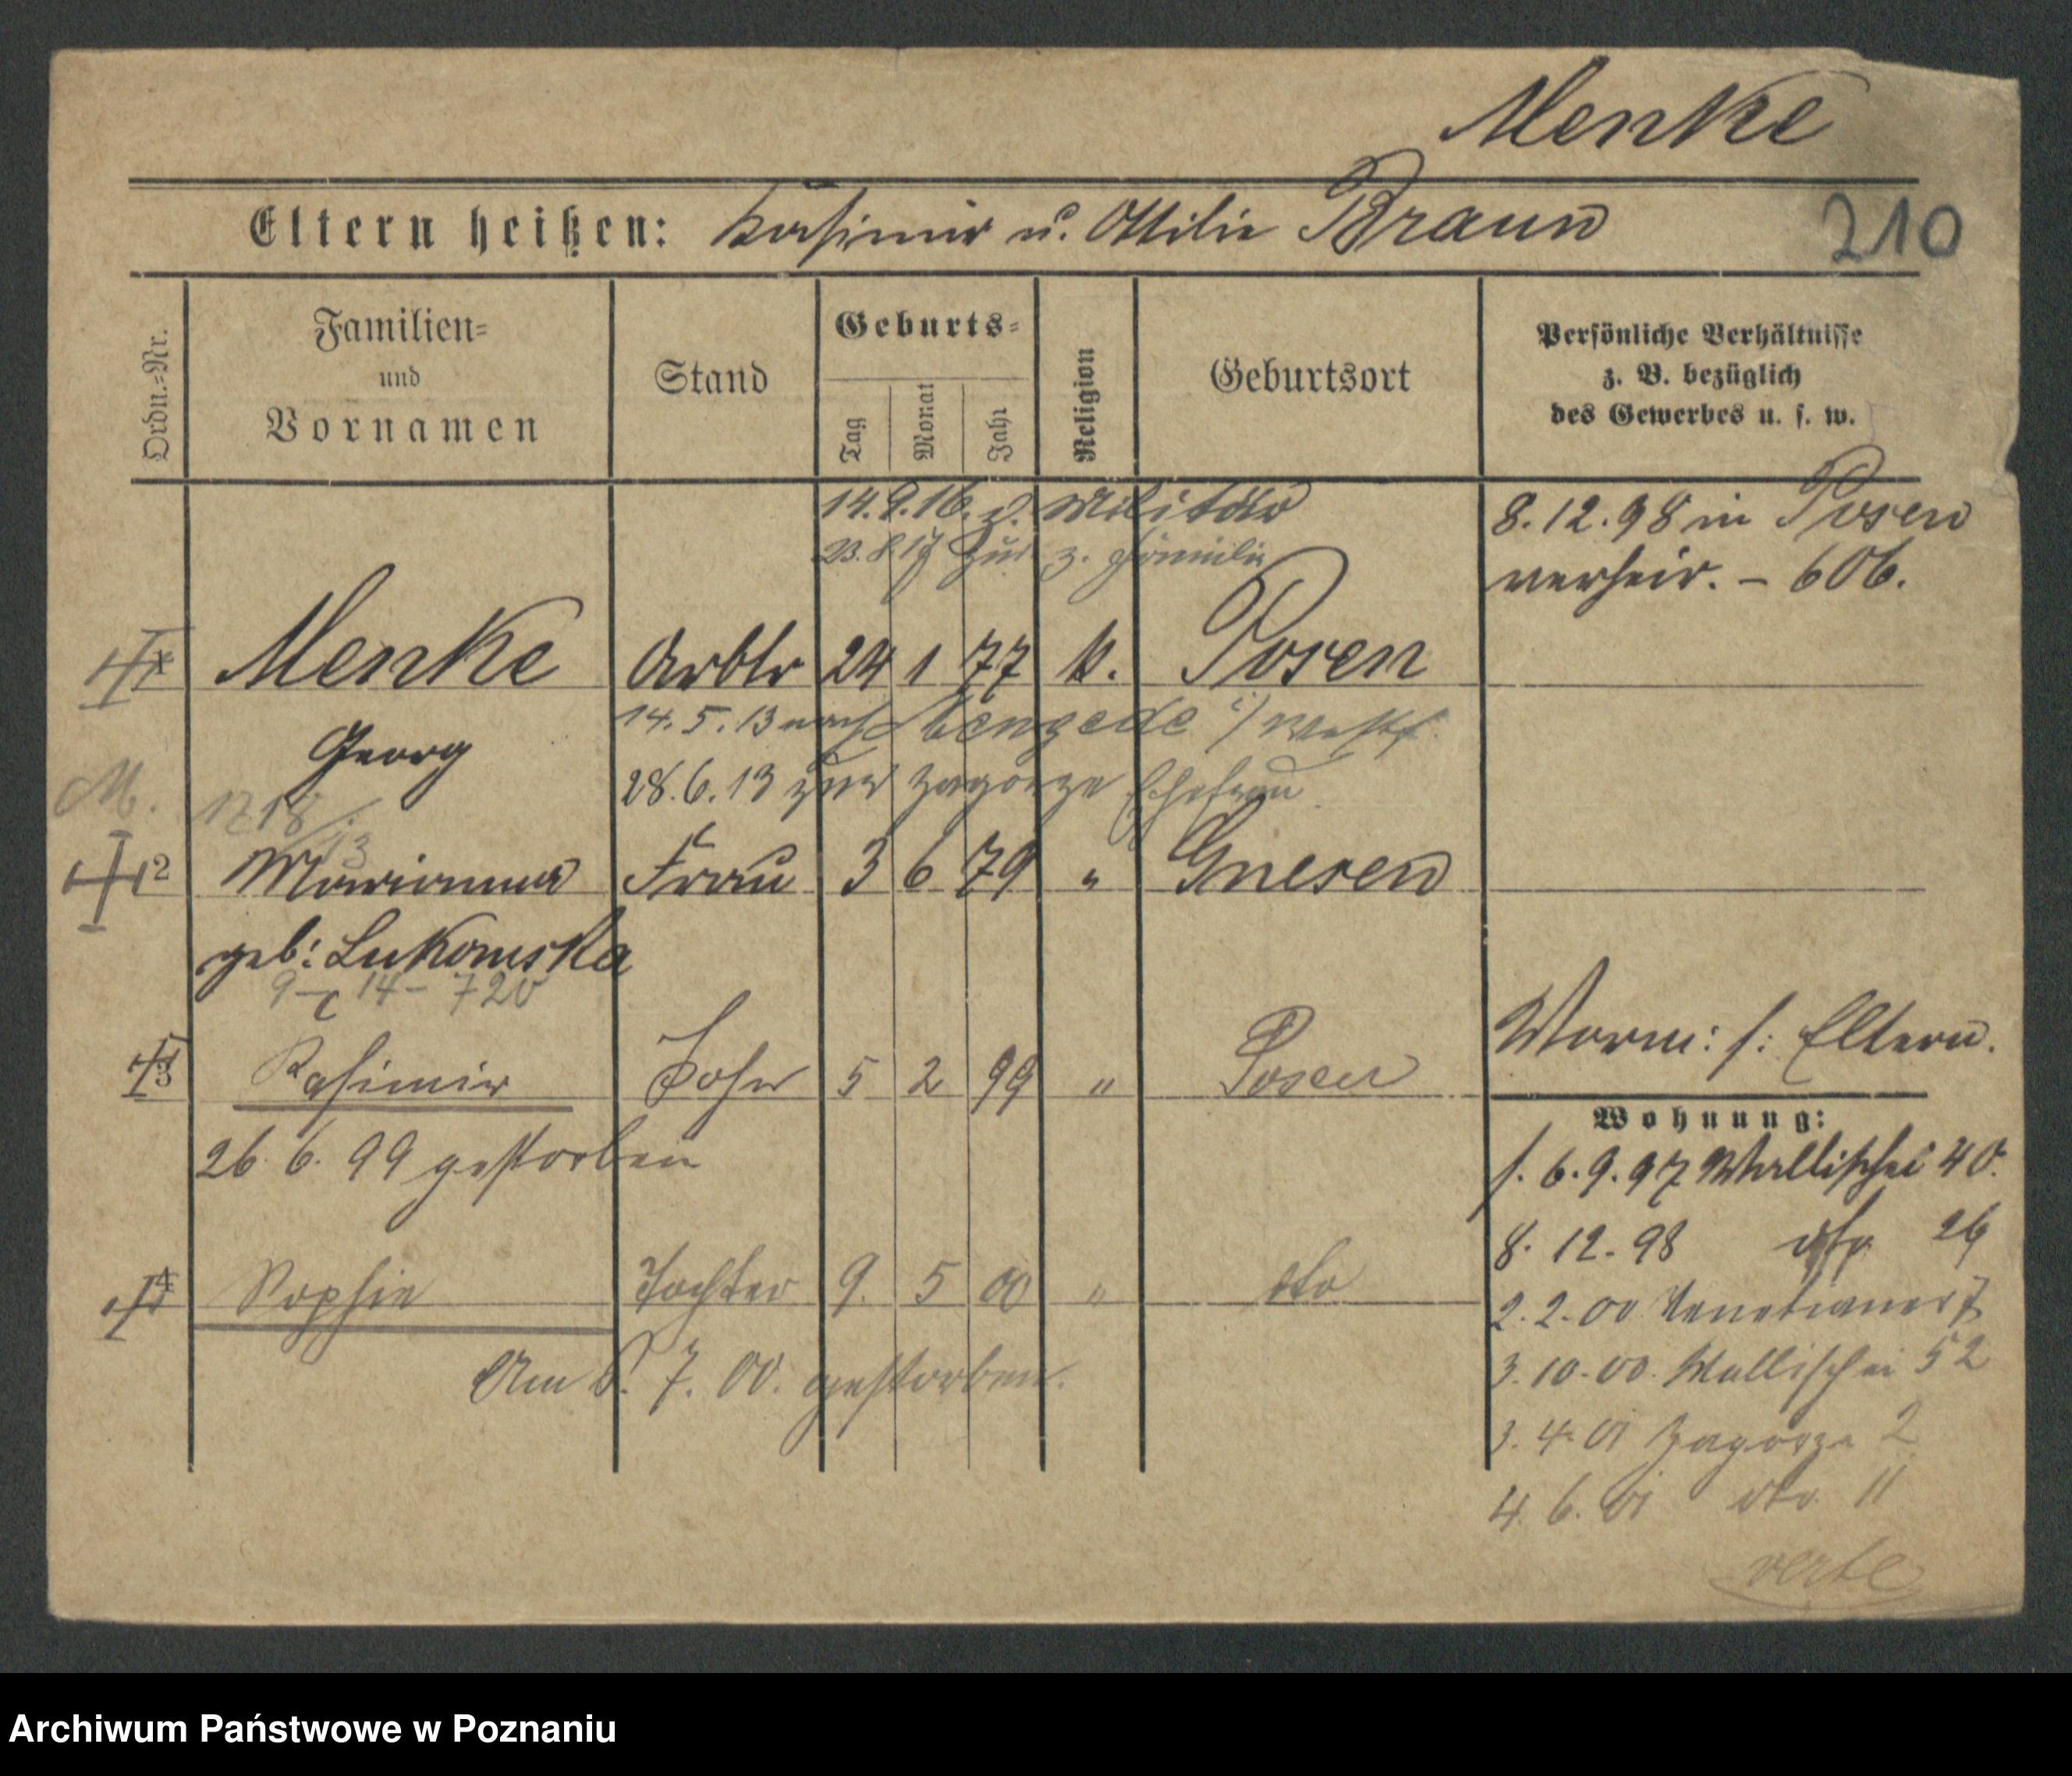 Menke
Eltern heißen: Kasimir u. Ottilie Braun
210
Ordn.-Nr.
Familien-
und
Vornamen
Stand
Geburts-
Tag
Monat
Jahr
Religion
Geburtsort
Persönliche Verhältnisse
z. B. bezüglich
des Gewerbes u. s. w.
14.9.16. z. Militär
23.8.17 zur z. Familie
8.12.98 in Posen
verheir. – 606.
1 Menke Arbtr 24 1 77 k. Posen
14.5.13 nach Mengede i/ Westf.
Georg
28.6.13 zur Zagorze Ehefrau
M.
1218/13
2 Marianna Frau 3 6 79 " Gnesen
geb: Lukomska
9 14 – 720
Vorm: s: Eltern.
3 Kasimir Sohn 5 2 99 " Posen
26. 6. 99 gestorben
Wohnung:
f. 6.9.97 Wallischei 40.
8. 12. 98 dto 26
4 Sophie Tochter 9. 5 00 " dto
2.2.00 Venetianer 7
Am 6. 7. 00. gestorben.
3.10.00. Wallischei 52
3. 4. 01 Zagorze 2
4. 6. 01 dto 11
verte
Archiwum Państwowe w Poznaniu